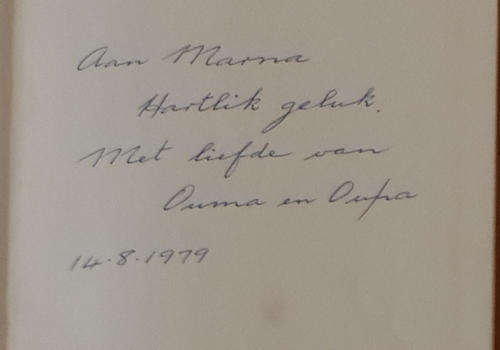 Aan Marna
Hartlik geluk.
Met liefde van
Ouma en Oupa
14.8.1979